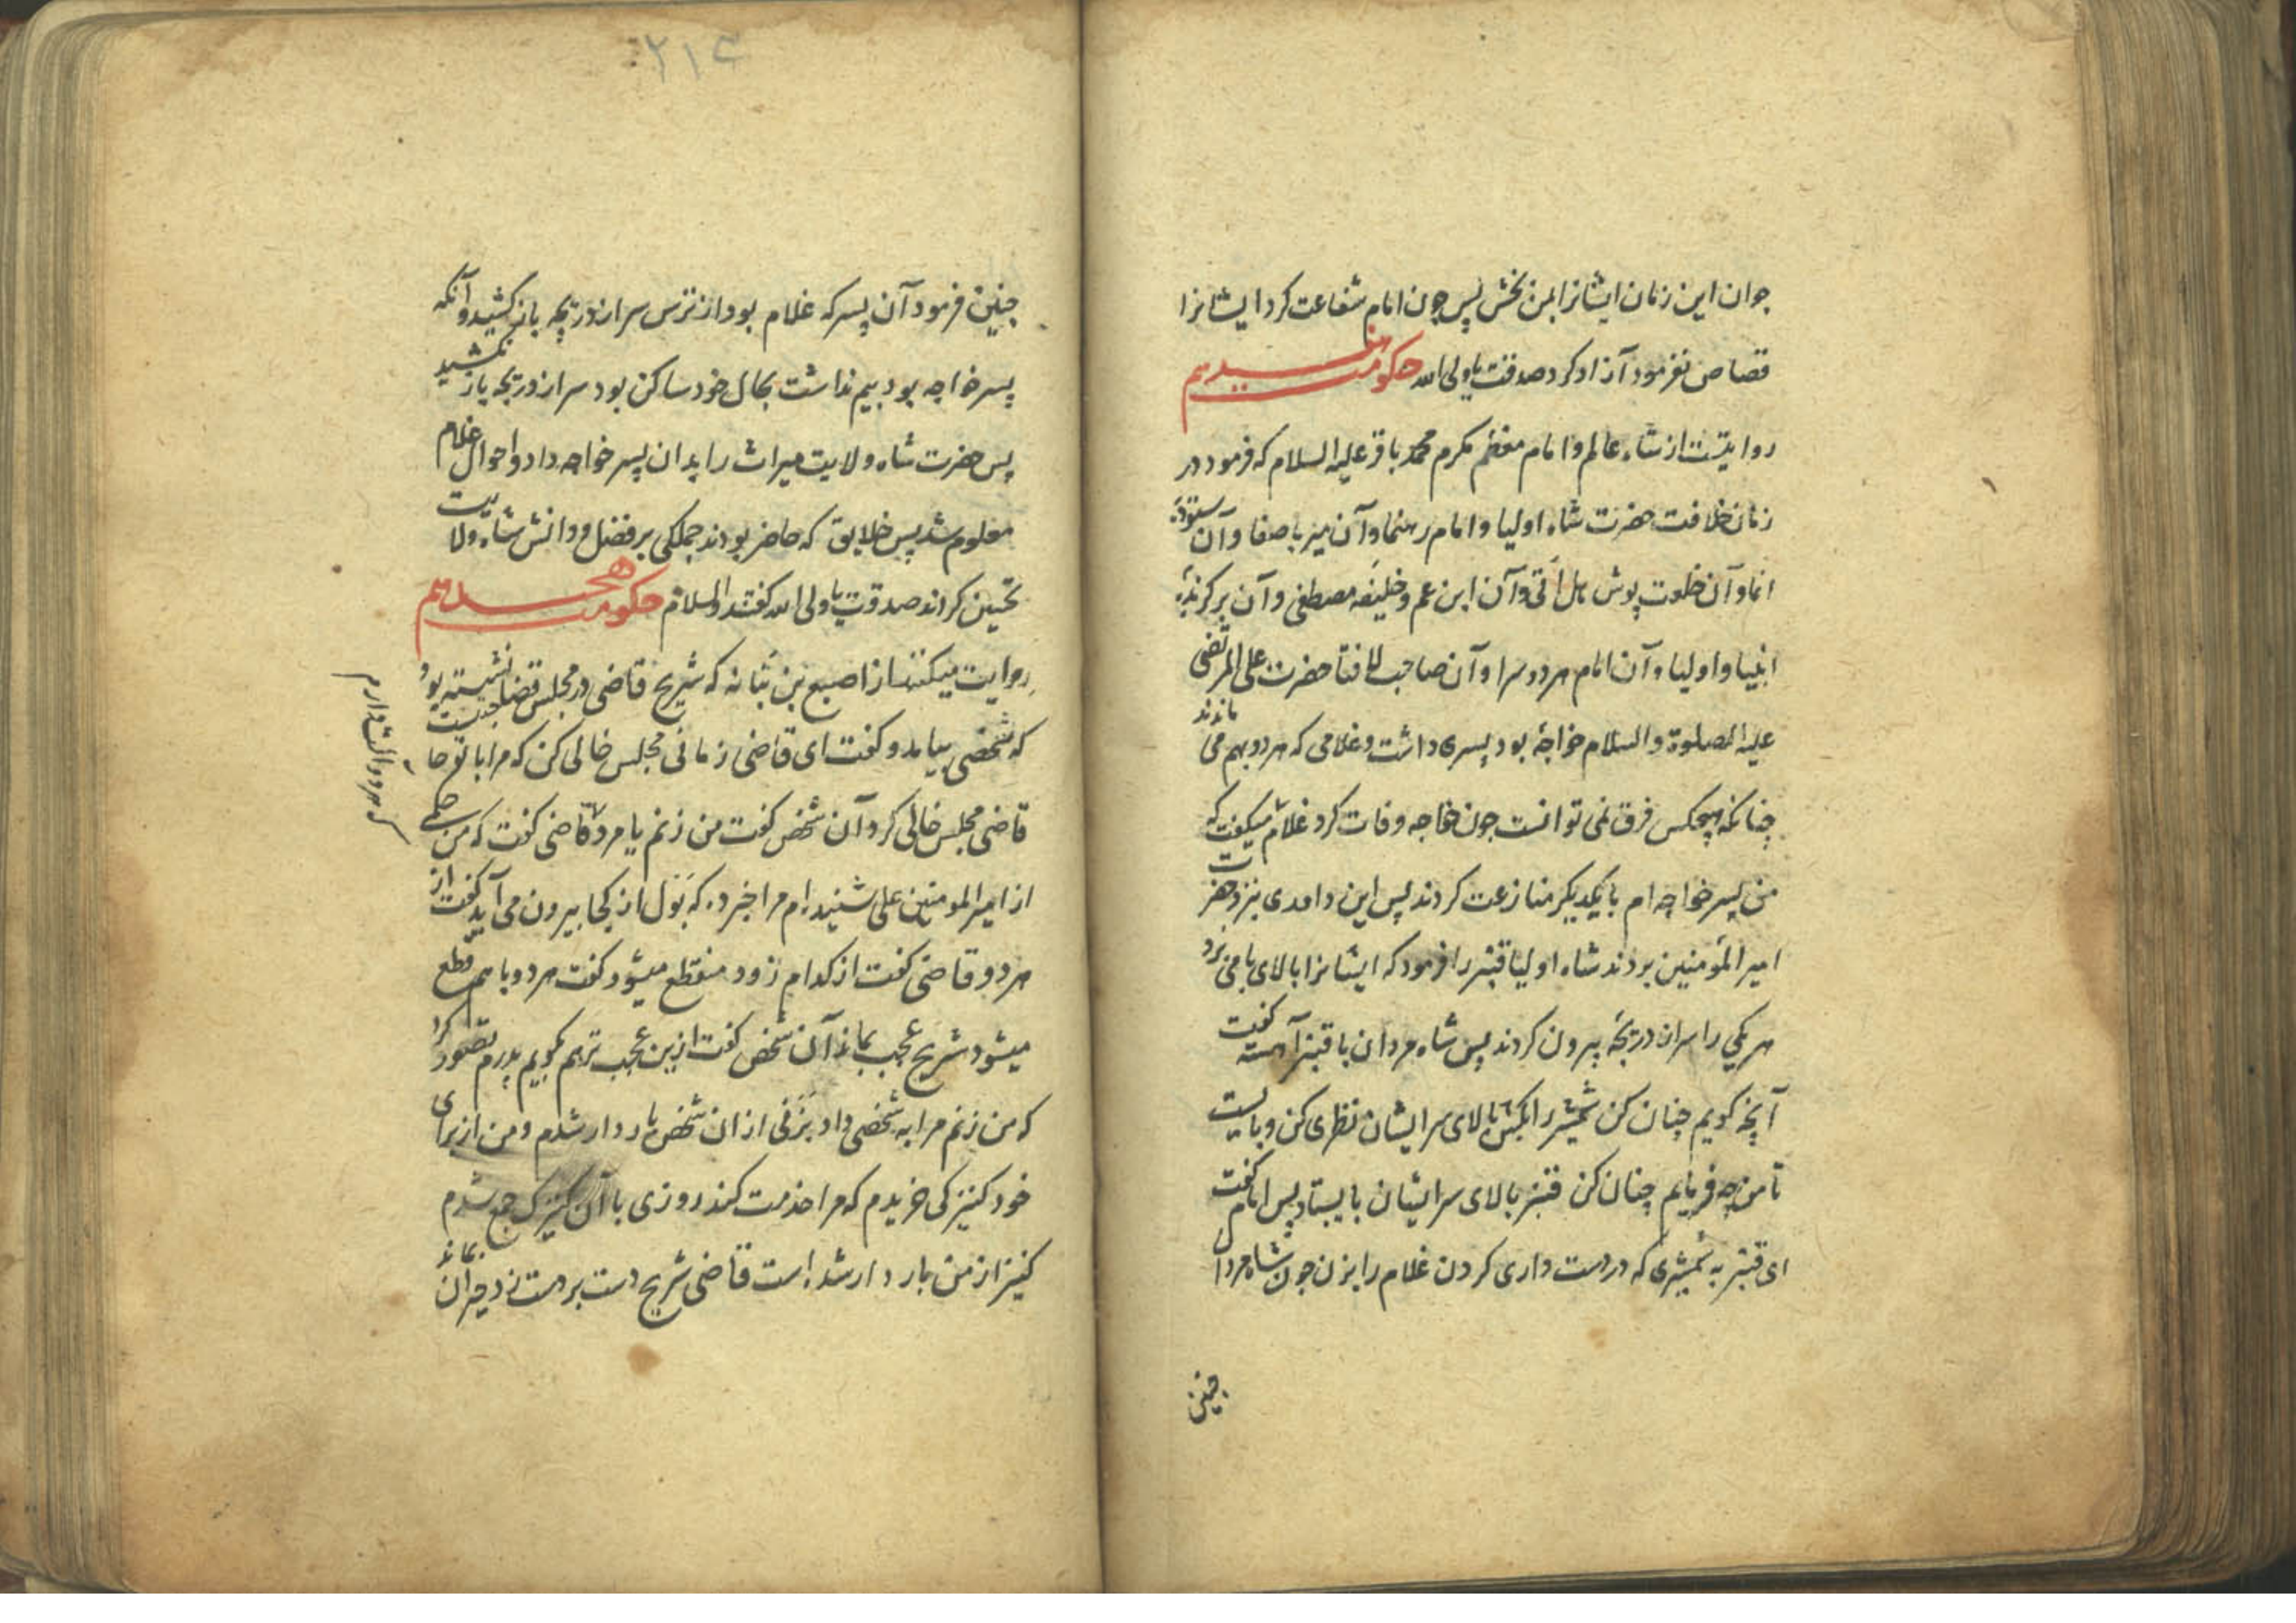 جوان این زمان ایشانرا بمن بخش پس چون امام شفاعت کرد ایشانرا
قصاص نفرمود آزاد کرد صدقت یا ولی الله حکومت هفدهم
روایتست از شاه عالم و امام معظم مکرم محمد باقر علیه السلام که فرمود در
زمان خلافت حضرت شاه اولیا و امام رهنما و آن میر با صفا و آن ستوده
انما و آن خلعت پوش هل اتی و آن ابن عم و خلیفه مصطفی و آن برگزیده
انبیا و اولیا و آن امام هر دو سرا و آن صاحب لافتا حضرت علی المرتضی
علیه الصلوة والسلام خواجۀ بود پسری داشت و غلامی که هر دو بهم می ماندند
چنانکه هیچکس فرق نمی توانست چون خواجه وفات کرد غلام میگفت که
من پسر خواجه ام با یکدیگر منازعت کردند پس این داوری بنزد حضرت
امیر المؤمنین بردند شاه اولیا قنبر را فرمود که ایشانرا بالای بامی برد
هر یکی را سر از دریچه بیرون کردند پس شاه مردان با قنبر آهسته گفت
آنچه گویم چنان کن شمشیر را بکش بالای سر ایشان نظری کن و بایست
تا من چه فرمایم چنان کن قنبر بالای سر ایشان بایستاد پس امام گفت
ای قنبر به شمشیری که در دست داری کردن غلام را بزن چون شاه مردان
چنین
۲۱۴
چنین فرمود آن پسر که غلام بود از ترس سر از دریچه باز کشید و آنکه
پسر خواجه بود بیم نداشت بحال خود ساکن بود سر از دریچه باز نکشید
پس حضرت شاه ولایت میراث را بدان پسر خواجه داد و احوال غلام
معلوم شد پس خلایق که حاضر بودند جملگی بر فضل و دانش شاه ولایت
تحسین کردند صدقت یا ولی الله گفتند والسلام حکومت هجدهم
روایت میکنند از اصبع بن نباته که شریح قاضی در مجلس قضا نشسته بود
که شخصی بیامد و گفت ای قاضی زمانی مجلس خالی کن که مرا با تو حاجتیست
قاضی مجلس خالی کرد آن شخص گفت من زنم یا مرد قاضی گفت که من حکمی
که هر دو آلت دارم
از امیر المومنین علی شنیده ام مرا خبر ده که بول از کجا بیرون می آید گفت از
هر دو قاضی گفت از کدام زود منقطع میشود گفت هر دو با هم قطع
میشود شریح عجب بماند آن شخص گفت ازین عجب تر هم بگویم پدرم تصور کرد
که من زنم مرا به شخصی داد بزنی از ان شخص بار دار شدم و من از برای
خود کنیزکی خریدم که مرا خدمت کند روزی با آن کنیزک جمع شدم
کنیز از من بار دار شده است قاضی شریح دست بر دست زد حیران بماند